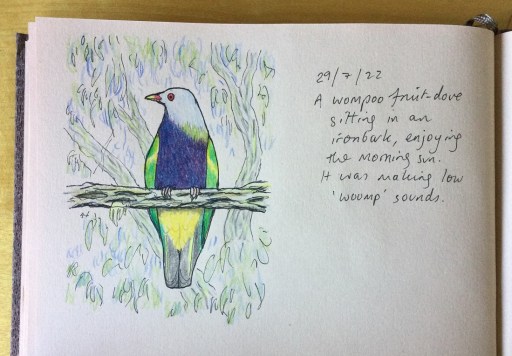 29/7/22
A wompoo fruit-dove
sitting in an
ironbark, enjoying
the morning sun.
It was making low
'woomp' sounds.